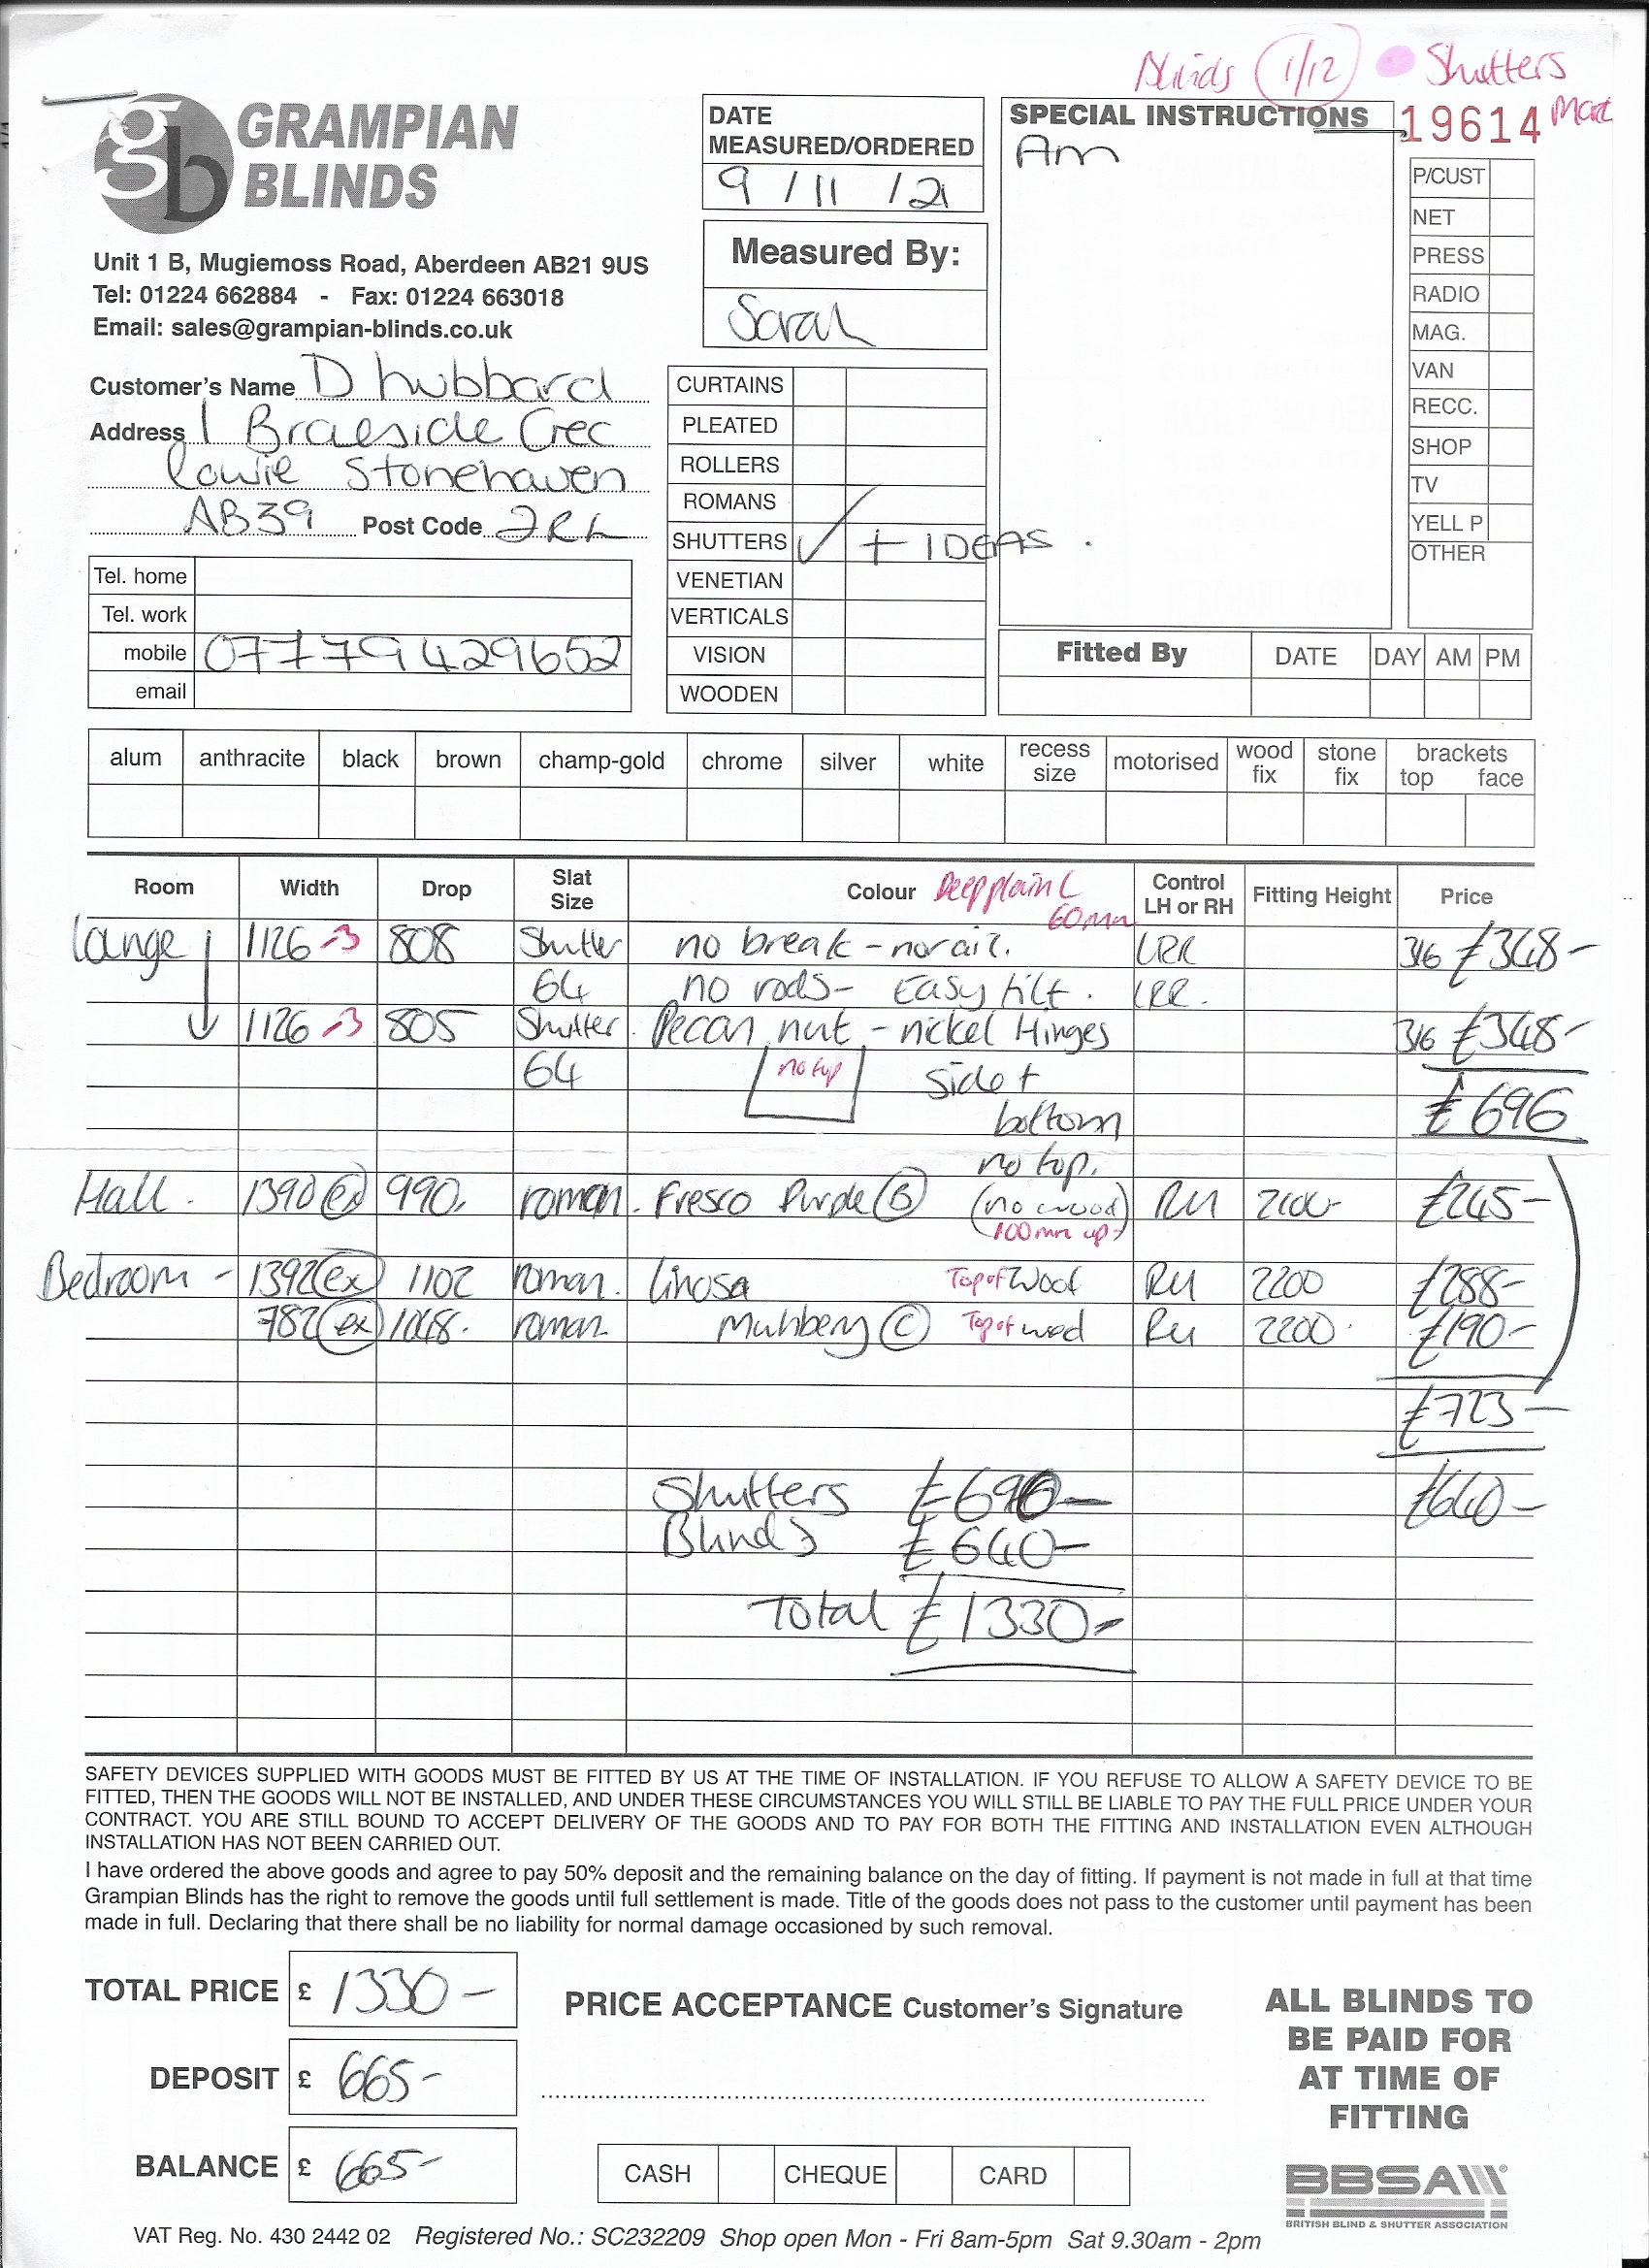 Blinds 1/12 Shutters
19614 Mark
gb GRAMPIAN BLINDS
Unit 1 B, Mugiemoss Road, Aberdeen AB21 9US
Tel: 01224 662884 - Fax: 01224 663018
Email: sales@grampian-blinds.co.uk
Customer's Name D hubbard
Address 1 Braeside Cres
Cowie Stonehaven
AB39 Post Code 2RL
Tel. home
Tel. work
mobile 07779429652
email
DATE
MEASURED/ORDERED
9 / 11 / 21
Measured By:
Sarah
CURTAINS
PLEATED
ROLLERS
ROMANS
SHUTTERS ✓ + IDEAS.
VENETIAN
VERTICALS
VISION
WOODEN
SPECIAL INSTRUCTIONS
Am
P/CUST
NET
PRESS
RADIO
MAG.
VAN
RECC.
SHOP
TV
YELL P
OTHER
Fitted By DATE DAY AM PM
alum anthracite black brown champ-gold chrome silver white recess size motorised wood fix stone fix brackets top face
Room Width Drop Slat Size Colour Deep plain L 60mm Control LH or RH Fitting Height Price
Lounge 1126 -3 808 Shutter no break - no rail. LRR 316 £348-
64 no rods - Easy tilt. LRR.
1126 -3 805 Shutter. Pecan nut - nickel Hinges 316 £348-
64 no top side +
bottom £696
no top.
Hall. 1390 (ex) 990. roman. Fresco Purple (B) (no wood) RH 2100- £245-
100mm up
Bedroom - 1392 (ex) 1102 roman. Linosa Top of Wood RH 2200 £288-
782 (ex) 1048. roman Mulberry (C) Top of wood RH 2200. £190-
£723-
Shutters £690- £640-
Blinds £640-
Total £1330-
SAFETY DEVICES SUPPLIED WITH GOODS MUST BE FITTED BY US AT THE TIME OF INSTALLATION. IF YOU REFUSE TO ALLOW A SAFETY DEVICE TO BE
FITTED, THEN THE GOODS WILL NOT BE INSTALLED, AND UNDER THESE CIRCUMSTANCES YOU WILL STILL BE LIABLE TO PAY THE FULL PRICE UNDER YOUR
CONTRACT. YOU ARE STILL BOUND TO ACCEPT DELIVERY OF THE GOODS AND TO PAY FOR BOTH THE FITTING AND INSTALLATION EVEN ALTHOUGH
INSTALLATION HAS NOT BEEN CARRIED OUT.
I have ordered the above goods and agree to pay 50% deposit and the remaining balance on the day of fitting. If payment is not made in full at that time
Grampian Blinds has the right to remove the goods until full settlement is made. Title of the goods does not pass to the customer until payment has been
made in full. Declaring that there shall be no liability for normal damage occasioned by such removal.
TOTAL PRICE £ 1330-
DEPOSIT £ 665-
BALANCE £ 665-
PRICE ACCEPTANCE Customer's Signature
CASH CHEQUE CARD
ALL BLINDS TO
BE PAID FOR
AT TIME OF
FITTING
BBSA
BRITISH BLIND & SHUTTER ASSOCIATION
VAT Reg. No. 430 2442 02 Registered No.: SC232209 Shop open Mon - Fri 8am-5pm Sat 9.30am - 2pm